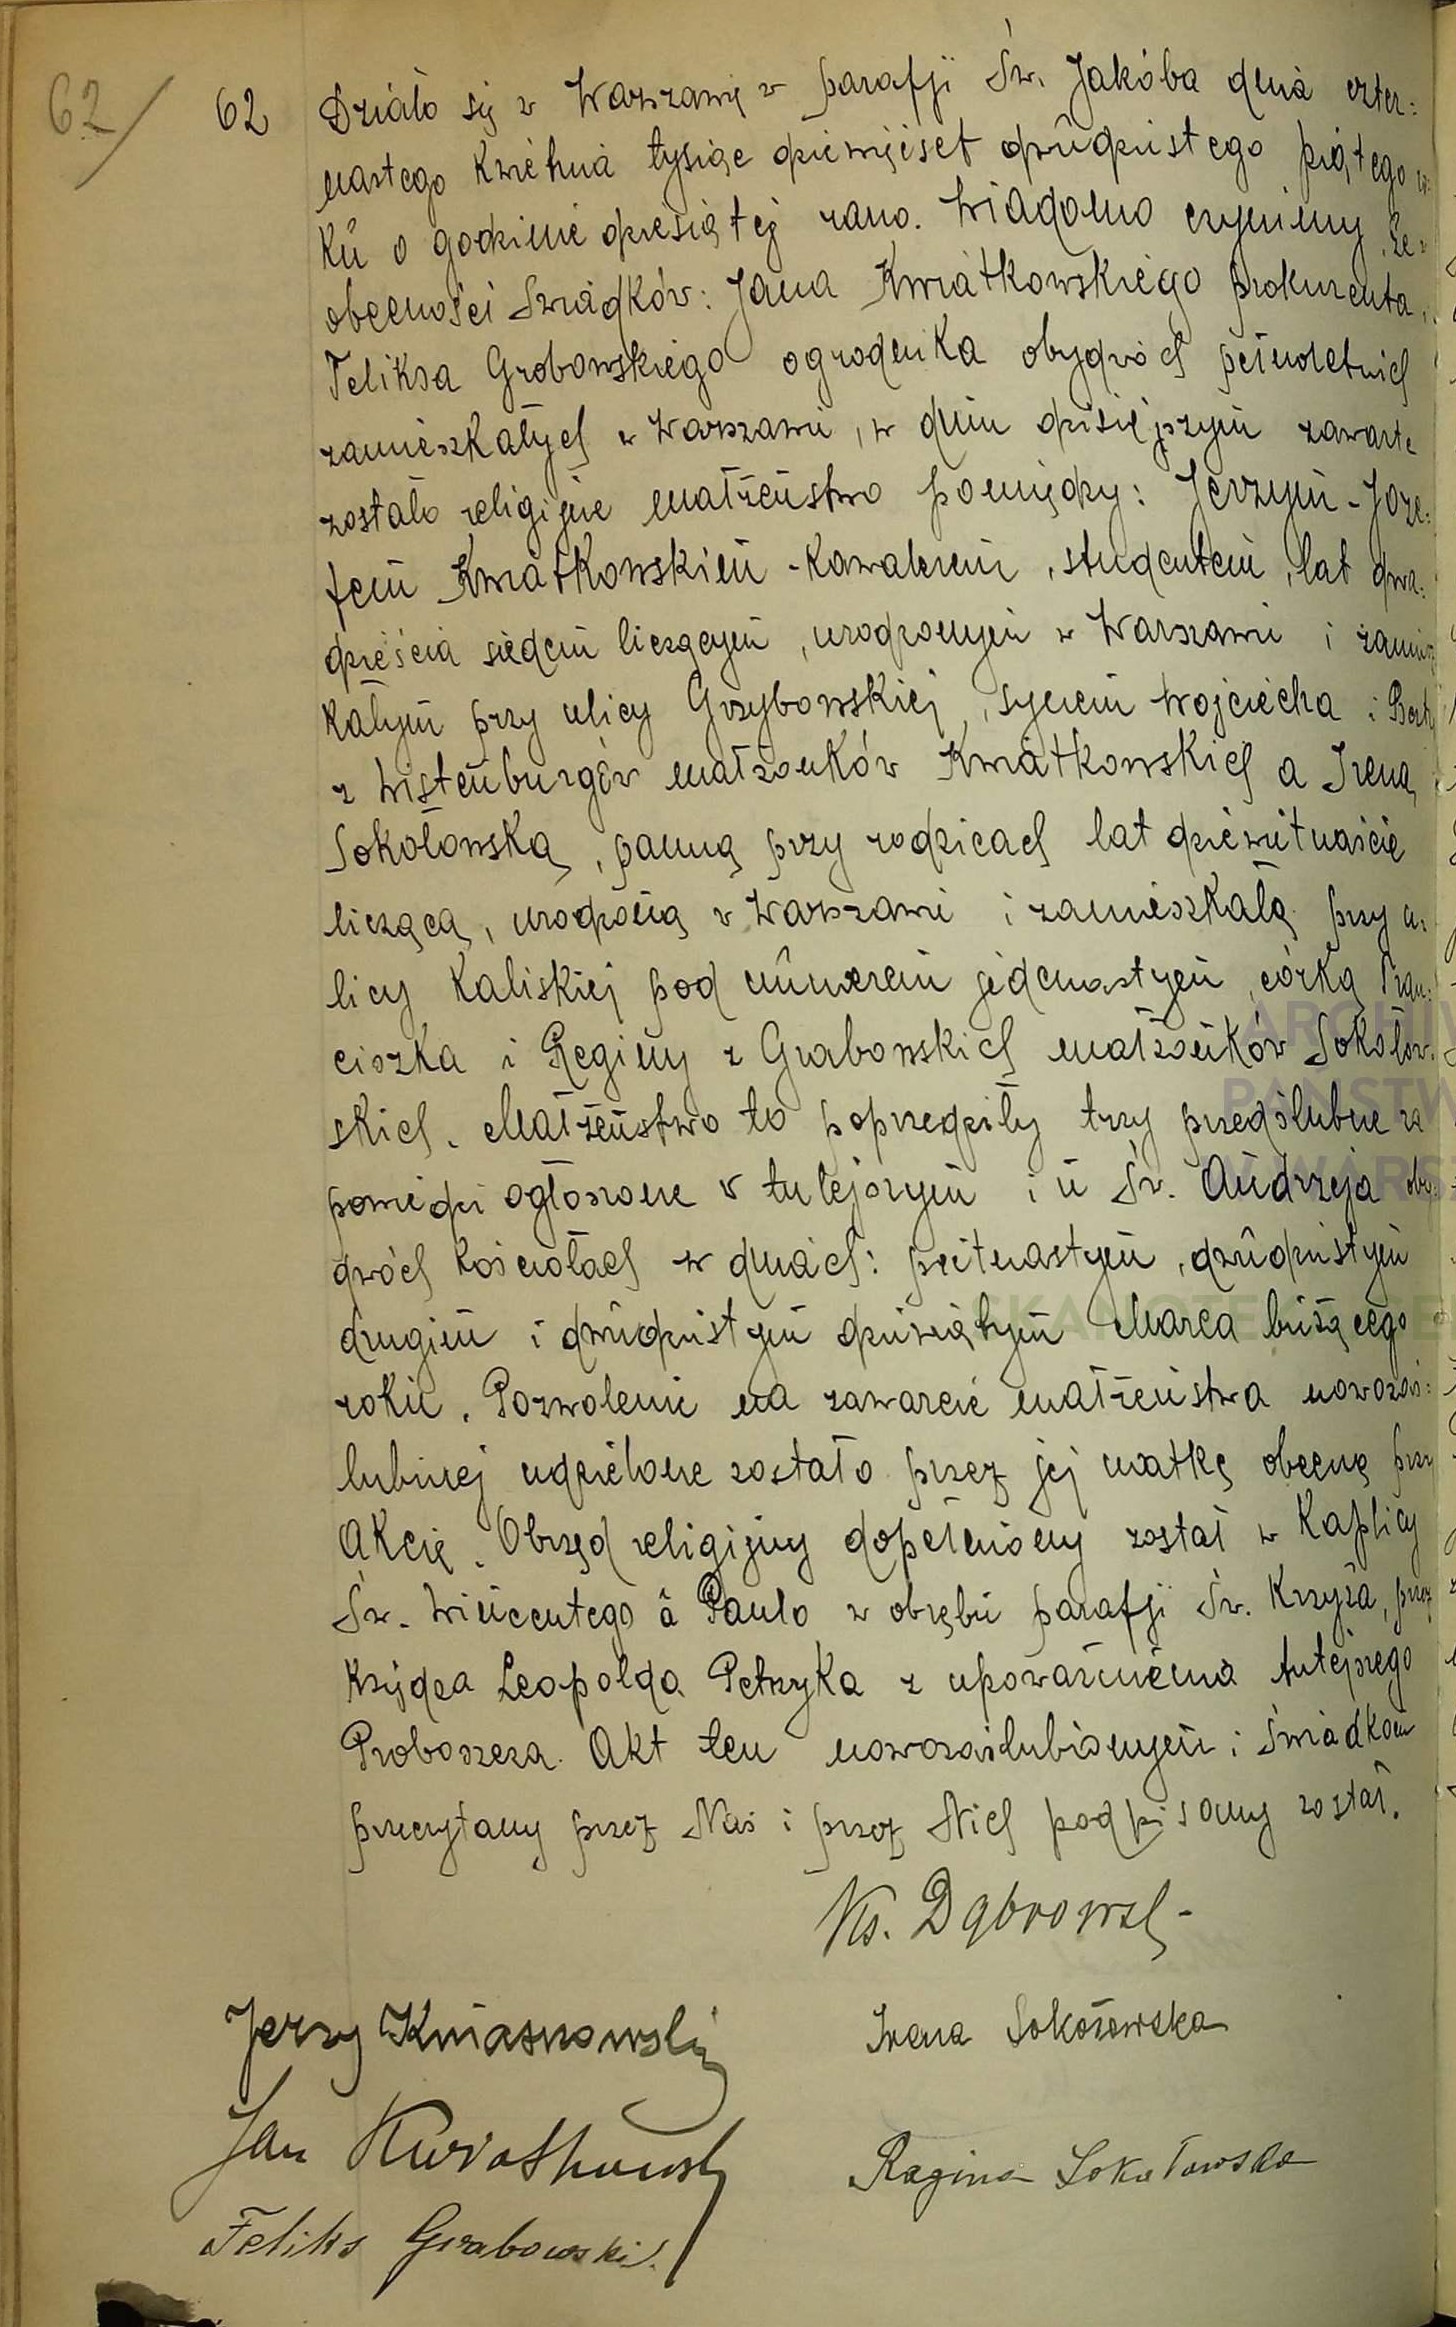 62/ 62 Działo się w Warszawie w parafji Św. Jakóba dnia czter=
nastego Kwietnia tysiąc dziewięćset dwudziestego piątego ro=
ku o godzinie dziesiątej rano. Wiadomo czynimy, że w
obecności Świadków: Jana Kwiatkowskiego prokurenta,
Feliksa Grobowskiego ogrodnika obydwóch pełnoletnich
zamieszkałych w Warszawie, w dniu dzisiejszym zawarte
zostało religijne małżeństwo pomiędzy: Jerzym-Joze=
fem Kwiatkowskim - Kawalerem, studentem, lat dwa=
dzieścia siedem liczącym, urodzonym w Warszawie i zamiesz
kałym przy ulicy Grzybowskiej, synem Wojciecha i
z Wistenburgów małżonków Kwiatkowskich a Ireną
Sokołowską, panną przy rodzicach lat dziewiętnaście
liczącą, urodzoną w Warszawie i zamieszkałą przy u=
licy Kaliskiej pod numerem jedenastym, córką Fran=
ciszka i Reginy z Grabowskich małżonków Sokołow=
skich. Małżeństwo to poprzedziły trzy przedślubne za
powiedzi ogłoszone w tutejszym i u Św. Andrzeja oby=
dwóch Kościołach w dniach: piętnastym, dwudziestym
drugim i dwudziestym dziewiątym Marca bieżącego
roku. Pozwolenie na zawarcie małżeństwa nowozaś=
lubionej udzielone zostało przez jej matkę obecną przy
Akcie. Obrzęd religijny dopełniony został w Kaplicy
Św. Wincentego â Paulo w obrębie parafji Św. Krzyża, przez
Księdza Leopolda Petrzyka z upoważnienia tutejszego
Proboszcza. Akt ten nowozaślubionym i Świadkom
przeczytany przez Nas i przez Nich podpisany został.
Ks. Dąbrowsk-
Jerzy Kwiatkowski Irena Sokołowska
Jan Kwiatkowski Regina Sokołowska
Feliks Grabowski.